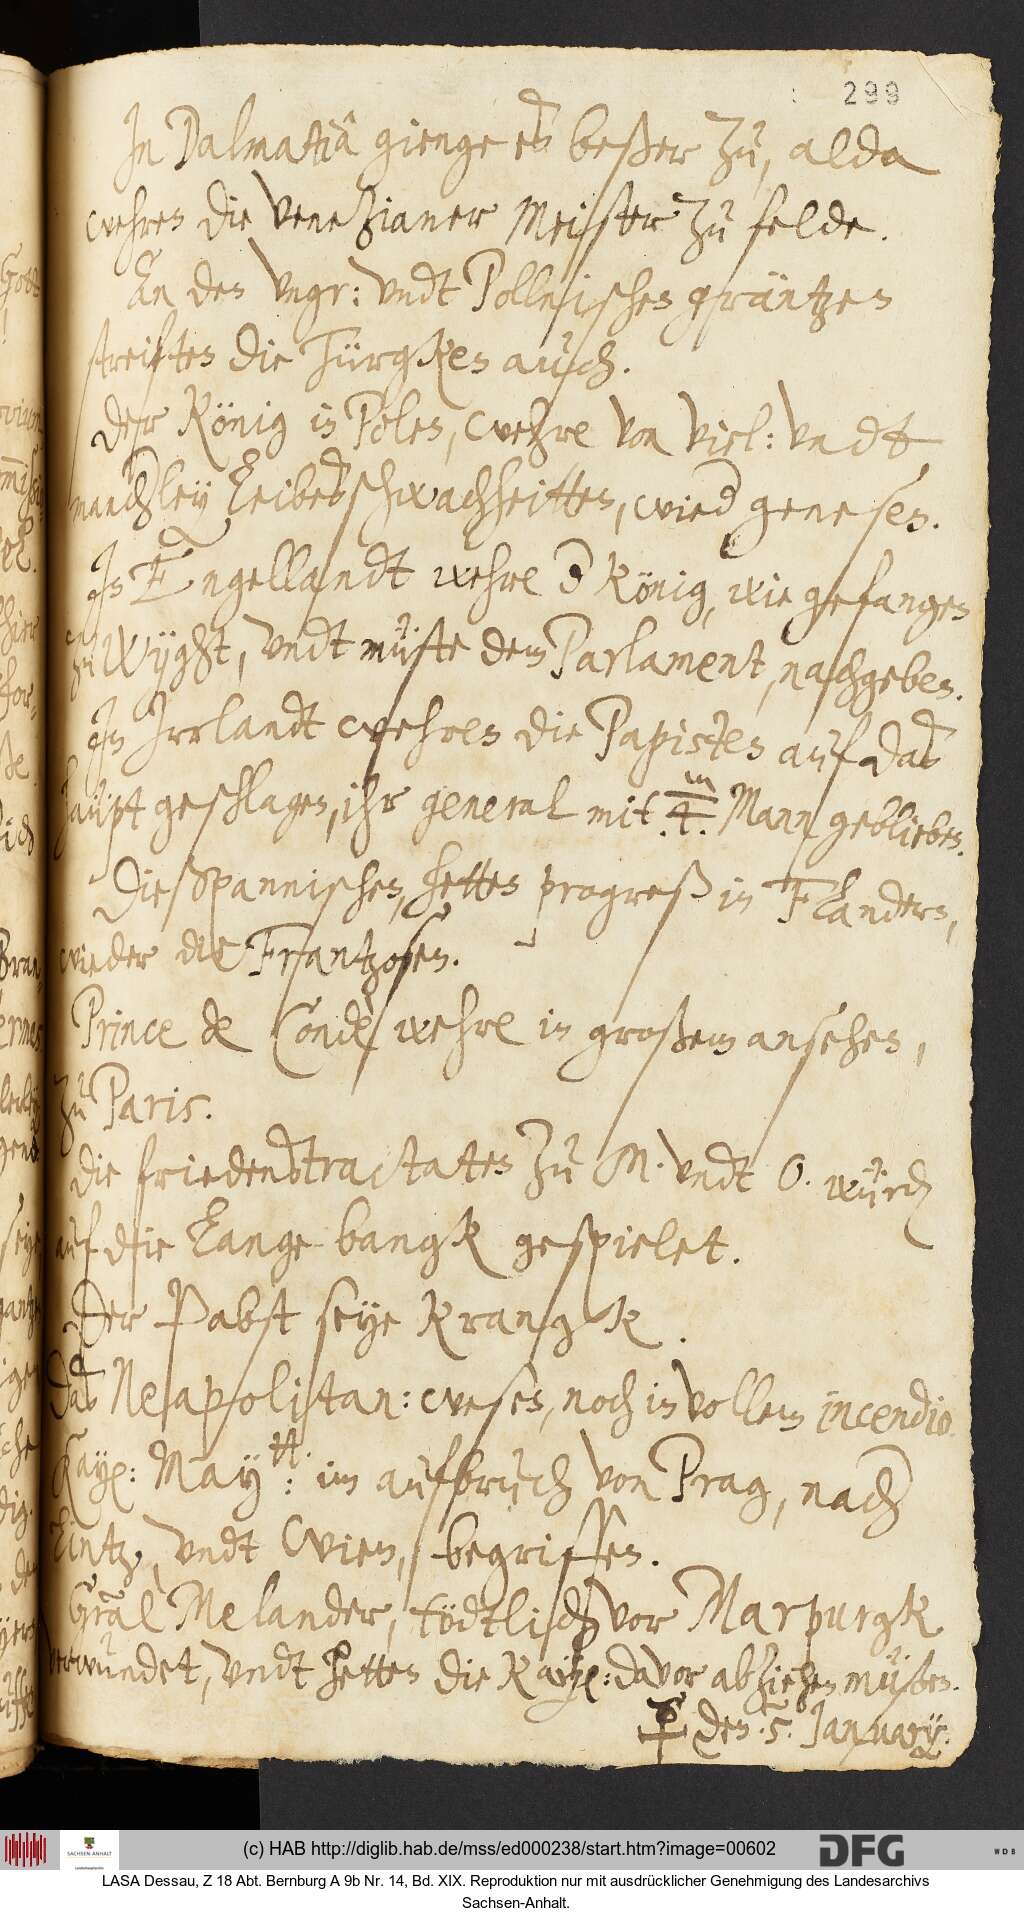 299
In Dalmatiâ gienge es beßer zu, alda
wehren die Venetzianer Meister zu felde.
An den Vngr: vndt Pollnischen gräntzen
streiften die Türgken auch.
Der König in Polen, wehre von viel: vndt
mancherley Leibesschwachheitten, wieder genesen.
In Engellandt wehre der König, wie gefangen
zu Wyght, vndt müste dem Parlament, nachgeben.
In Irrlandt wehren die Papisten auf das
haüpt geschlagen, ihr general mit .4.m Mann geblieben.
Die Spannischen, hetten progreß in Flandern,
wieder die Frantzosen.
Prince de Condè wehre in großem ansehen,
zu Paris.
Die friedenstractaten zu M. vndt O. würden
auf die Lange bangk gespielet.
Der Pabst seye Krangk.
Das Neapolitan: wesen, noch in vollem incendio.
Kayß: May:tt: im aufbruch von Prag, nacher
Lintz, vndt Wien, begriffen.
Gräl Melander, tödtlich vor Marpurgk
verwundet, vndt hetten die Kayß: davor abziehen müßen.
☿ den .5. January.
(c) HAB http://diglib.hab.de/mss/ed000238/start.htm?image=00602
SACHSEN-ANHALT
DFG
WDB
LASA Dessau, Z 18 Abt. Bernburg A 9b Nr. 14, Bd. XIX. Reproduktion nur mit ausdrücklicher Genehmigung des Landesarchivs
Sachsen-Anhalt.